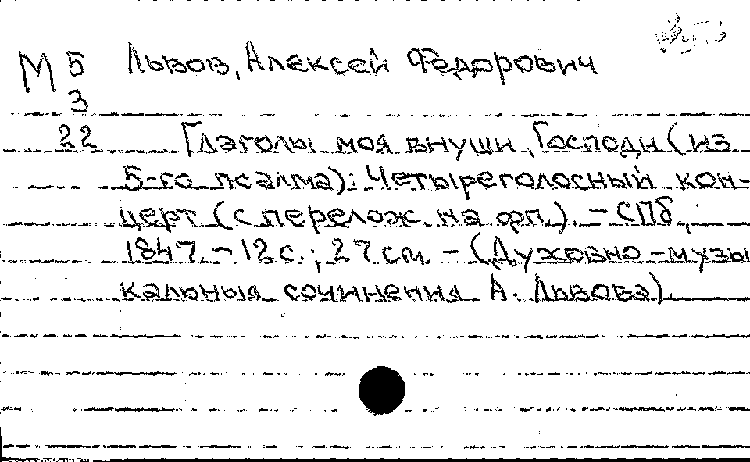 М 5 Львов, Алексей Федорович
3
22 Глаголы моя внуши, Господи (из
5-го псалма): Четыреголосный кон-
церт (с перелож. на фп.). – СПб,
1847. – 12 с.; 27 см. – (Духовно-музы
кальныя сочинения А. Львова).